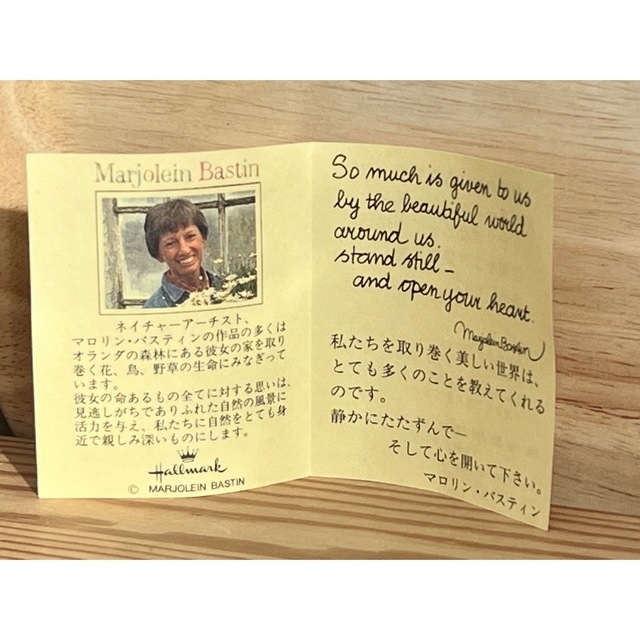 Marjolein Bastin
ネイチャーアーチスト、
マロリン・バスティンの作品の多くは
オランダの森林にある彼女の家を取り
巻く花、鳥、野草の生命にみなぎって
います。
彼女の命あるもの全てに対する思いは、
見逃しがちでありふれた自然の風景に
活力を与え、私たちに自然をとても身
近で親しみ深いものにします。
Hallmark
© MARJOLEIN BASTIN
So much is given to us
by the beautiful world
around us.
stand still –
and open your heart.
Marjolein Bastin
私たちを取り巻く美しい世界は、
とても多くのことを教えてくれる
のです。
静かにたたずんで—
そして心を開いて下さい。
マロリン・バスティン